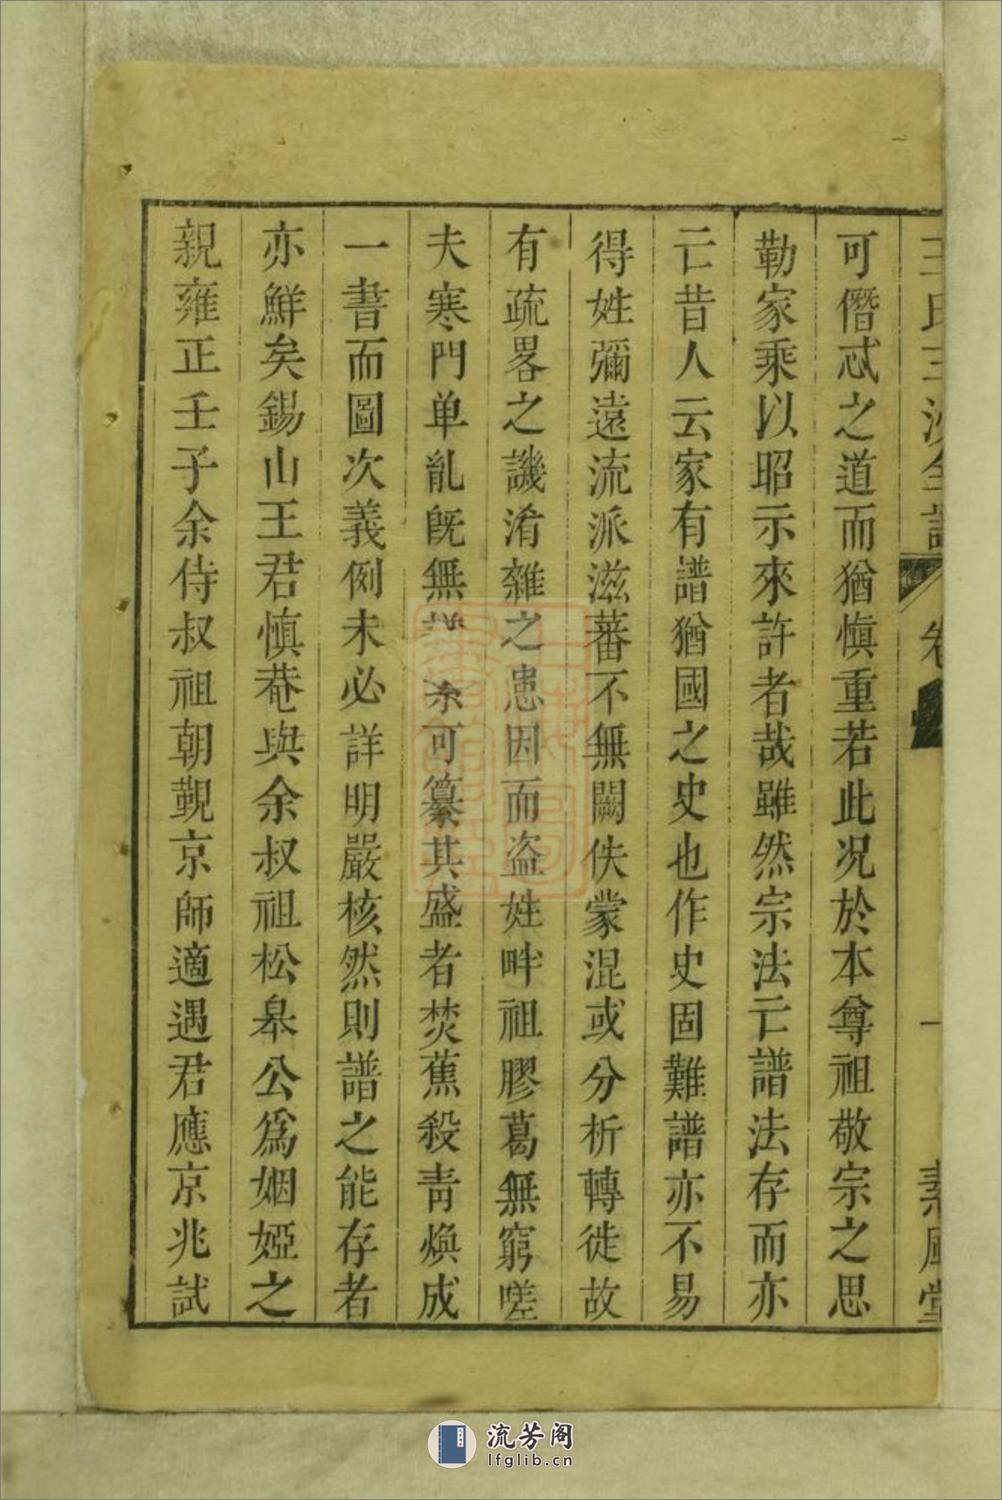 王氏三沙全譜 卷 一 素風堂
可僭忒之道而猶慎重若此况於本尊祖敬宗之思
勒家乘以昭示來許者哉雖然宗法亡譜法存而亦
亡昔人云家有譜猶國之史也作史固難譜亦不易
得姓彌遠流派滋蕃不無闕佚蒙混或分析轉徙故
有疏畧之譏淆雜之患因而盗姓畔祖膠葛無窮嗟
夫寒門单亂旣無 系可纂其盛者焚蕉殺青煥成
一書而圖次義例未必詳明嚴核然則譜之能存者
亦鮮矣錫山王君慎菴與余叔祖松皋公爲姻婭之
親雍正壬子余侍叔祖朝覲京師適遇君應京兆試
流芳阁
lfglib.cn